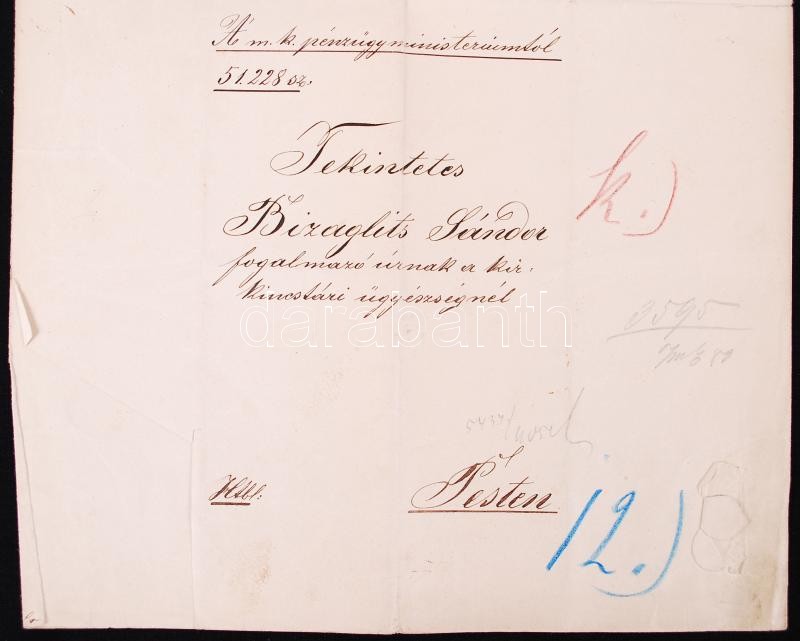 A m. k. pénzügyministeriumtól
51.228 sz.
Tekintetes
Bizaglits Sándor
fogalmazó úrnak a kir.
kincstári ügyészségnél
k.)
darabanth
3595
Htbl:
Pesten
12.)